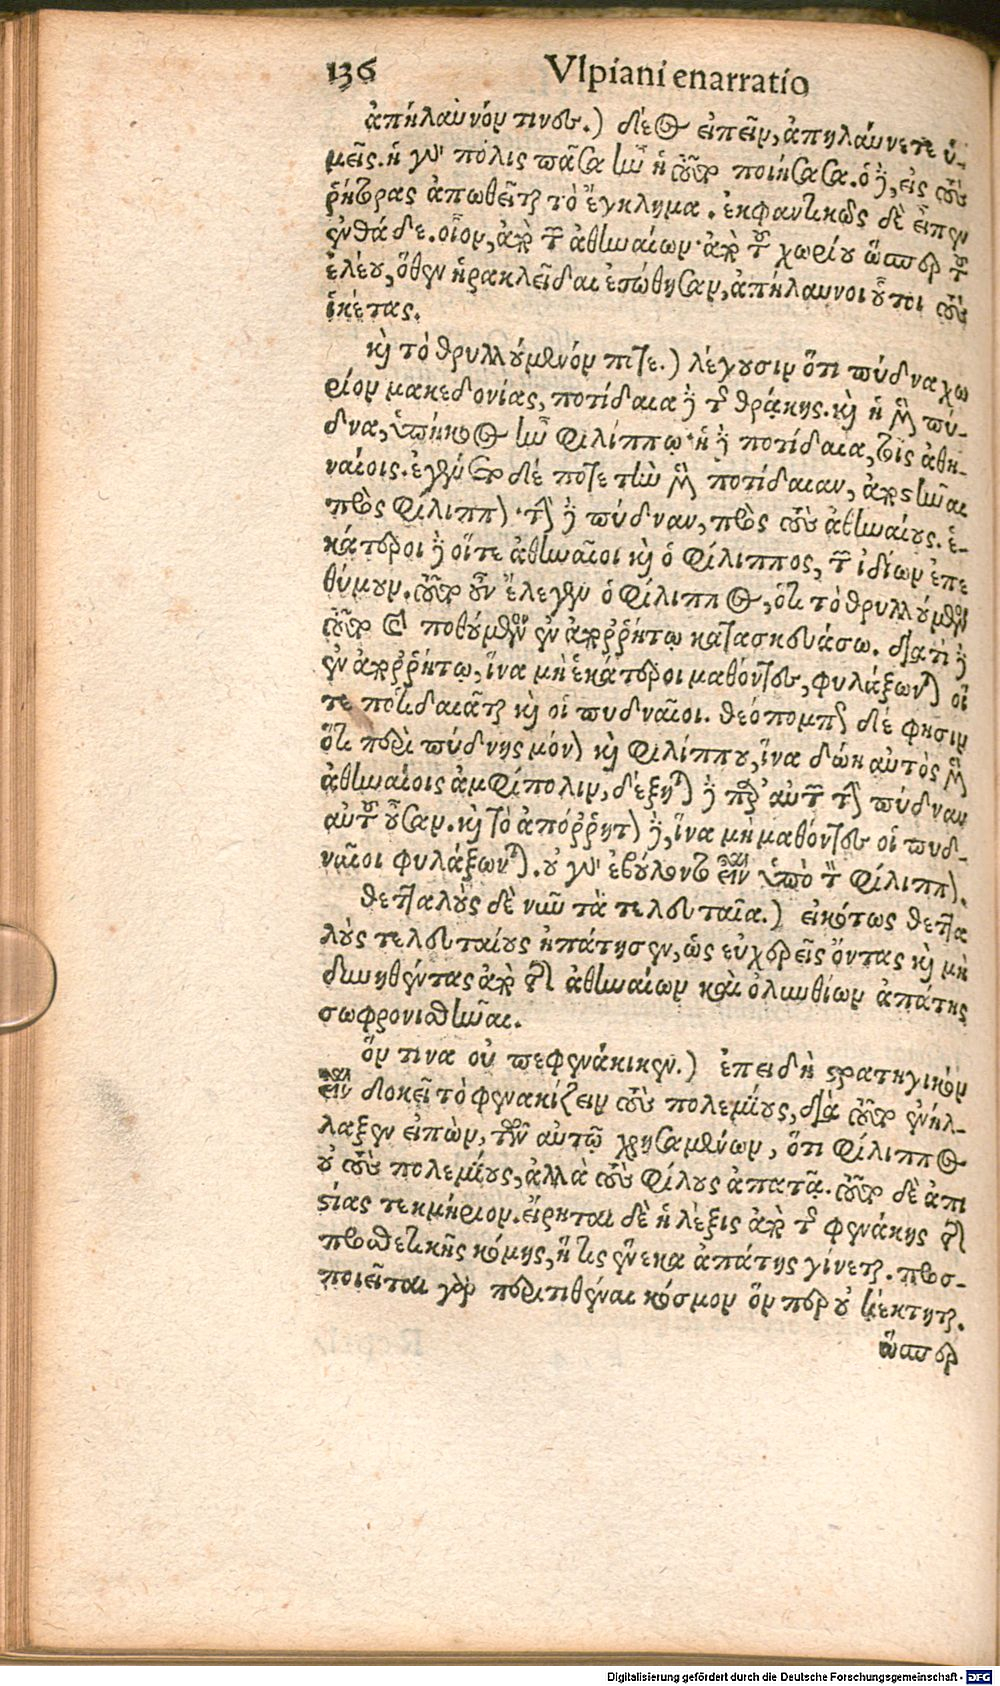 136 Vlpiani enarratio
ἀπήλαυνόν τινες.) δέον εἰπεῖν, ἀπηλαύνετε ὑ-
μεῖς. ἡ γὰρ πόλις πᾶσα ἦν ἡ τοῦτο ποιήσασα. ὁ δὲ, εἰς τοὺς
ῥήτορας ἀπωθεῖται τὸ ἔγκλημα. ἐκφαντικῶς δὲ εἶπεν
ἐνθάδε. οἷον, ἀπὸ τῶν ἀθηναίων· ἀπὸ τοῦ χωρίου ὥσπερ τοῦ
ἐλέου, ὅθεν ἡρακλεῖδαι ἐσώθησαν, ἀπήλαυνον οὗτοι τοὺς
ἱκέτας.
καὶ τὸ θρυλλούμενόν ποτε.) λέγουσιν ὅτι πύδνα χω
ρίον μακεδονίας, ποτίδαια δὲ τῆς θράκης. καὶ ἡ μὲν πύ-
δνα, ὑπήκοος ἦν φιλίππῳ· ἡ δὲ ποτίδαια, τοῖς ἀθη-
ναίοις. ἐγένετο δέ ποτε τὴν μὲν ποτίδαιαν, ἀποστῆναι
πρὸς φίλιππον· τὴν δὲ πύδναν, πρὸς τοὺς ἀθηναίους. ἑ-
κάτεροι δὲ οἵ τε ἀθηναῖοι καὶ ὁ φίλιππος, τῶν ἰδίων ἐπε
θύμουν. τοῦτο οὖν ἔλεγεν ὁ φίλιππος, ὅτι τὸ θρυλλούμενον
τοῦτο καὶ ποθούμενον ἐν ἀπορρήτῳ κατασκευάσω. διατί δὲ
ἐν ἀπορρήτῳ, ἵνα μὴ ἑκάτεροι μαθόντες, φυλάξωνται οἵ
τε ποτιδαιᾶται καὶ οἱ πυδναῖοι. θεόπομπος δέ φησιν
ὅτι περὶ πύδνης μόνον καὶ φιλίππου, ἵνα δῷη αὐτὸς μὲν
ἀθηναίοις ἀμφίπολιν, δέξηται δὲ παρ' αὐτῶν τὴν πύδναν
αὐτοῦ οὖσαν. καὶ τὸ ἀπόρρητον δὲ, ἵνα μὴ μαθόντες οἱ πυδ-
ναῖοι φυλάξωνται. οὐ γὰρ ἐβούλοντο εἶναι ὑπὸ τὸν φίλιππον.
θετταλοὺς δὲ νῦν τὰ τελευταῖα.) εἰκότως θεττα
λοὺς τελευταίους ἠπάτησεν, ὡς εὐχερεῖς ὄντας καὶ μὴ
δυνηθέντας ἀπὸ τῆς ἀθηναίων καὶ ὀλυνθίων ἀπάτης
σωφρονισθῆναι.
ὅν τινα οὐ πεφενάκικεν.) ἐπειδὴ στρατηγικὸν
εἶναι δοκεῖ τὸ φενακίζειν τοὺς πολεμίους, διὰ τοῦτο ἐνήλ-
λαξεν εἰπὼν, τῶν αὐτῷ χρησαμένων, ὅτι φίλιππος
οὐ τοὺς πολεμίους, ἀλλὰ τοὺς φίλους ἀπατᾷ. τοῦτο δὲ ἀπι
στίας τεκμήριον. εἴρηται δὲ ἡ λέξις ἀπὸ τῆς φενάκης τῆς
προσθετικῆς κόμης, ἥτις ἕνεκα ἀπάτης γίνεται. προσ-
ποιεῖται γὰρ περιτιθέναι κόσμον ὅν περ οὐ κέκτηται.
ὥσπερ
Digitalisierung gefördert durch die Deutsche Forschungsgemeinschaft - DFG